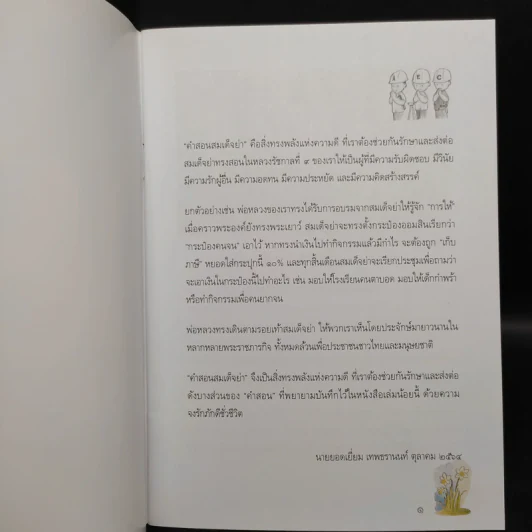 "คำสอนสมเด็จย่า" คือสิ่งทรงพลังแห่งความดี ที่เราต้องช่วยกันรักษาและส่งต่อ
สมเด็จย่าทรงสอนในหลวงรัชกาลที่ ๙ ของเราให้เป็นผู้ที่มีความรับผิดชอบ มีวินัย
มีความรักผู้อื่น มีความอดทน มีความประหยัด และมีความคิดสร้างสรรค์
ยกตัวอย่างเช่น พ่อหลวงของเราทรงได้รับการอบรมจากสมเด็จย่าให้รู้จัก "การให้"
เมื่อคราวพระองค์ยังทรงพระเยาว์ สมเด็จย่าจะทรงตั้งกระป๋องออมสินเรียกว่า
"กระป๋องคนจน" เอาไว้ หากทรงนำเงินไปทำกิจกรรมแล้วมีกำไร จะต้องถูก "เก็บ
ภาษี" หยอดใส่กระปุกนี้ ๑๐% และทุกสิ้นเดือนสมเด็จย่าจะเรียกประชุมเพื่อถามว่า
จะเอาเงินในกระป๋องนี้ไปทำอะไร เช่น มอบให้โรงเรียนคนตาบอด มอบให้เด็กกำพร้า
หรือทำกิจกรรมเพื่อคนยากจน
พ่อหลวงทรงเดินตามรอยเท้าสมเด็จย่า ให้พวกเราเห็นโดยประจักษ์มายาวนานใน
หลากหลายพระราชภารกิจ ทั้งหมดล้วนเพื่อประชาชนชาวไทยและมนุษยชาติ
"คำสอนสมเด็จย่า" จึงเป็นสิ่งทรงพลังแห่งความดี ที่เราต้องช่วยกันรักษาและส่งต่อ
ดังบางส่วนของ "คำสอน" ที่พยายามบันทึกไว้ในหนังสือเล่มน้อยนี้ ด้วยความ
จงรักภักดีชั่วชีวิต
นายยอดเยี่ยม เทพธรานนท์ ตุลาคม ๒๕๖๔
๑